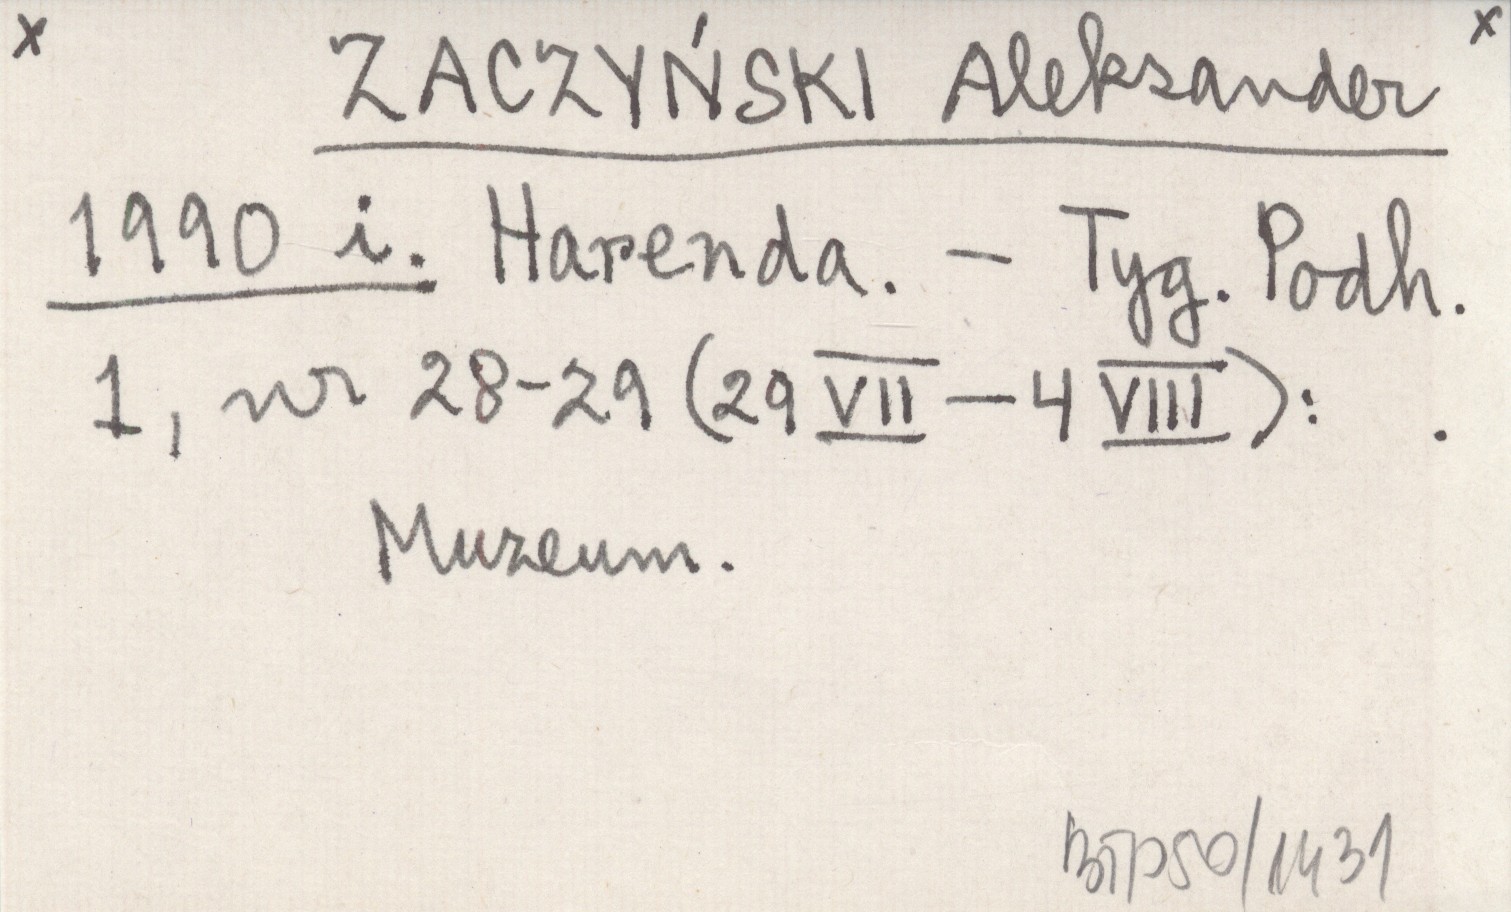 x x
ZACZYŃSKI Aleksander
1990 i. Harenda. – Tyg. Podh.
1, nr 28-29 (29 VII – 4 VIII): .
Muzeum.
BTP50/1431